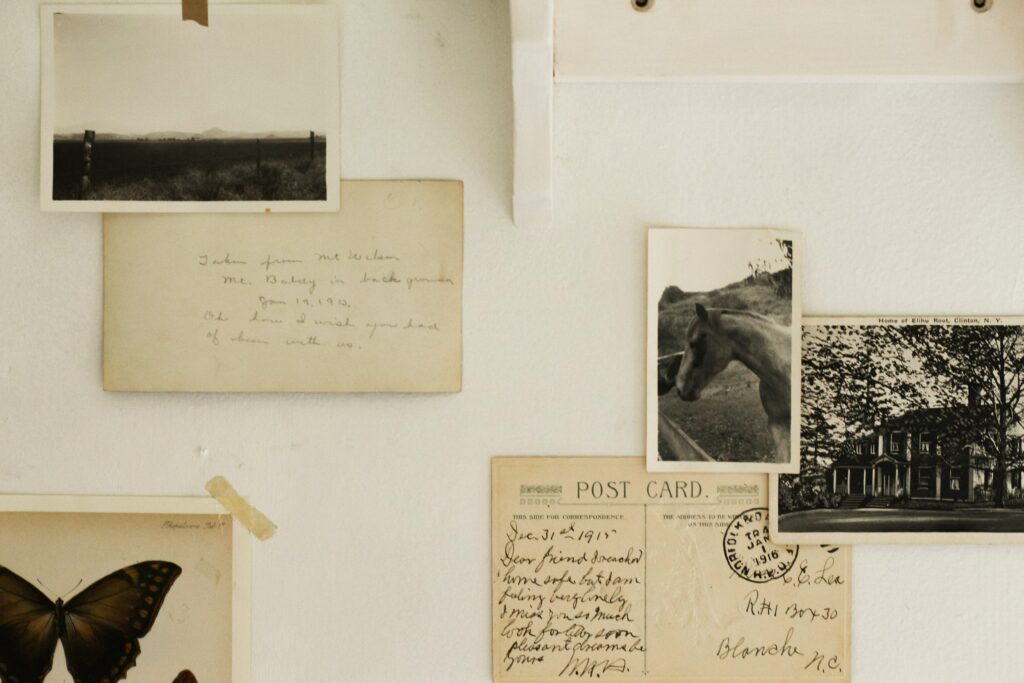 Taken from Mt Wilson
Mt. Baldy in back ground
Jan 19, 1913.
Oh how I wish you had
of been with us.
Home of Elihu Root, Clinton, N. Y.
POST CARD.
THIS SIDE FOR CORRESPONDENCE
THE ADDRESS TO BE
ON THIS SIDE
Dec. 31st 1915
Dear friend I reached
home safe but I am
feling very lonely
I miss you so much
look for letter soon
pleasant dreams be
yours
NORFOLK
TRA
JAN
1
1916
R.P.O.
C. E. Lea
R#1 Box 30
Blanche
N.C.